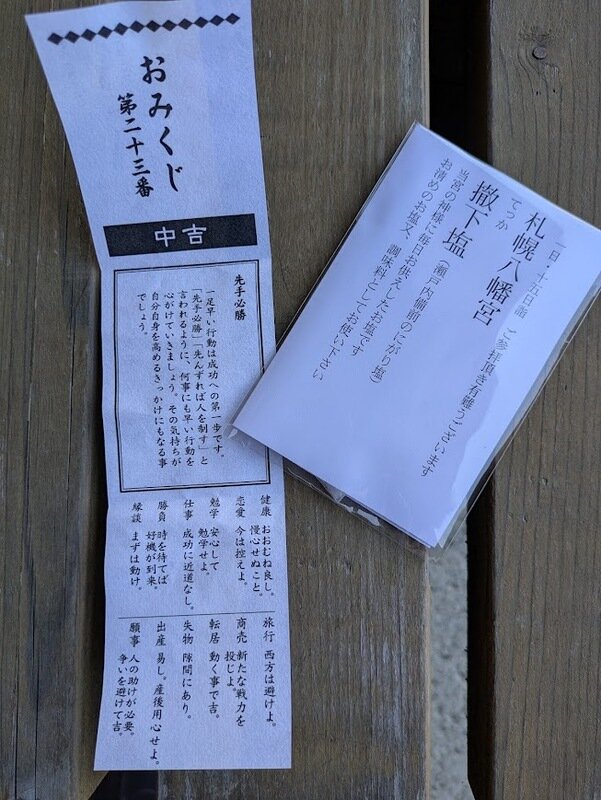 おみくじ
第二十三番
中吉
先手必勝
一足早い行動は成功への第一歩です。
「先手必勝」「先んずれば人を制す」と
言われるように、何事にも早い行動を
心がけていきましょう。その気持ちが
自分自身を高めるきっかけにもなる事
でしょう。
健康 おおむね良し。
慢心せぬこと。
恋愛 今は控えよ。
勉学 安心して
勉学せよ。
仕事 成功に近道なし。
勝負 時を待てば
好機が到来。
縁談 まずは動け。
旅行 西方は避けよ。
商売 新たな戦力を
投じよ。
転居 動く事で吉。
失物 隙間にあり。
出産 易し。産後用心せよ。
願事 人の助けが必要。
争いを避けて吉。
一日・十五日詣 ご参拝頂き有難うございます
札幌八幡宮
てっか
撤下塩(瀬戸内備前のにがり塩)
当宮の神様に毎日お供えしたお塩です
お清めのお塩又、調味料としてお使い下さい